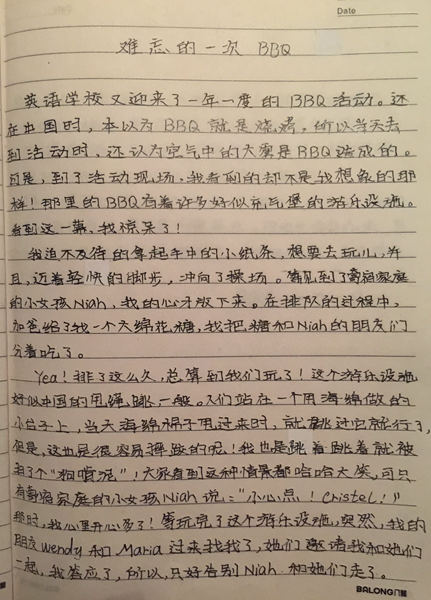 Date
难忘的一次 BBQ
英语学校又迎来了一年一度的BBQ活动。还
在中国时，本以为BBQ就是烧烤，所以当天去
到活动时，还认为空气中的大雾是BBQ造成的。
可是，到了活动现场，我看到的却不是我想象的那
样！那里的BBQ有着许多好似充气堡的游乐设施。
看到这一幕，我惊呆了！
我迫不及待的拿起手中的小纸条，想要去玩儿，并
且，迈着轻快的脚步，冲向了操场。等见到了寄宿家庭
的小女孩Niah，我的心才放下来。在排队的过程中，
加爸给了我一个大绵花糖，我把糖和Niah的朋友们
分着吃了。
Yea！排了这么久，总算到我们玩了！这个游乐设施
好似中国的甩绳跳一般。人们站在一个用海绵做的
小台子上，当大海绵棉子甩过来时，就跳过它就行了，
但是，这也是很容易摔跤的呢！我也是跳着跳着就被
摔了个"狗啃泥"！大家看到这种情景都哈哈大笑，可只
有寄宿家庭的小女孩Niah说："小心点！Cristel！"
那时，我心里开心多了！等玩完了这个游乐设施，突然，我的
朋友Wendy和Maria过来找我了，她们邀请我和她们
一起，我答应了，所以，只好告别Niah和她们走了。
BALONG